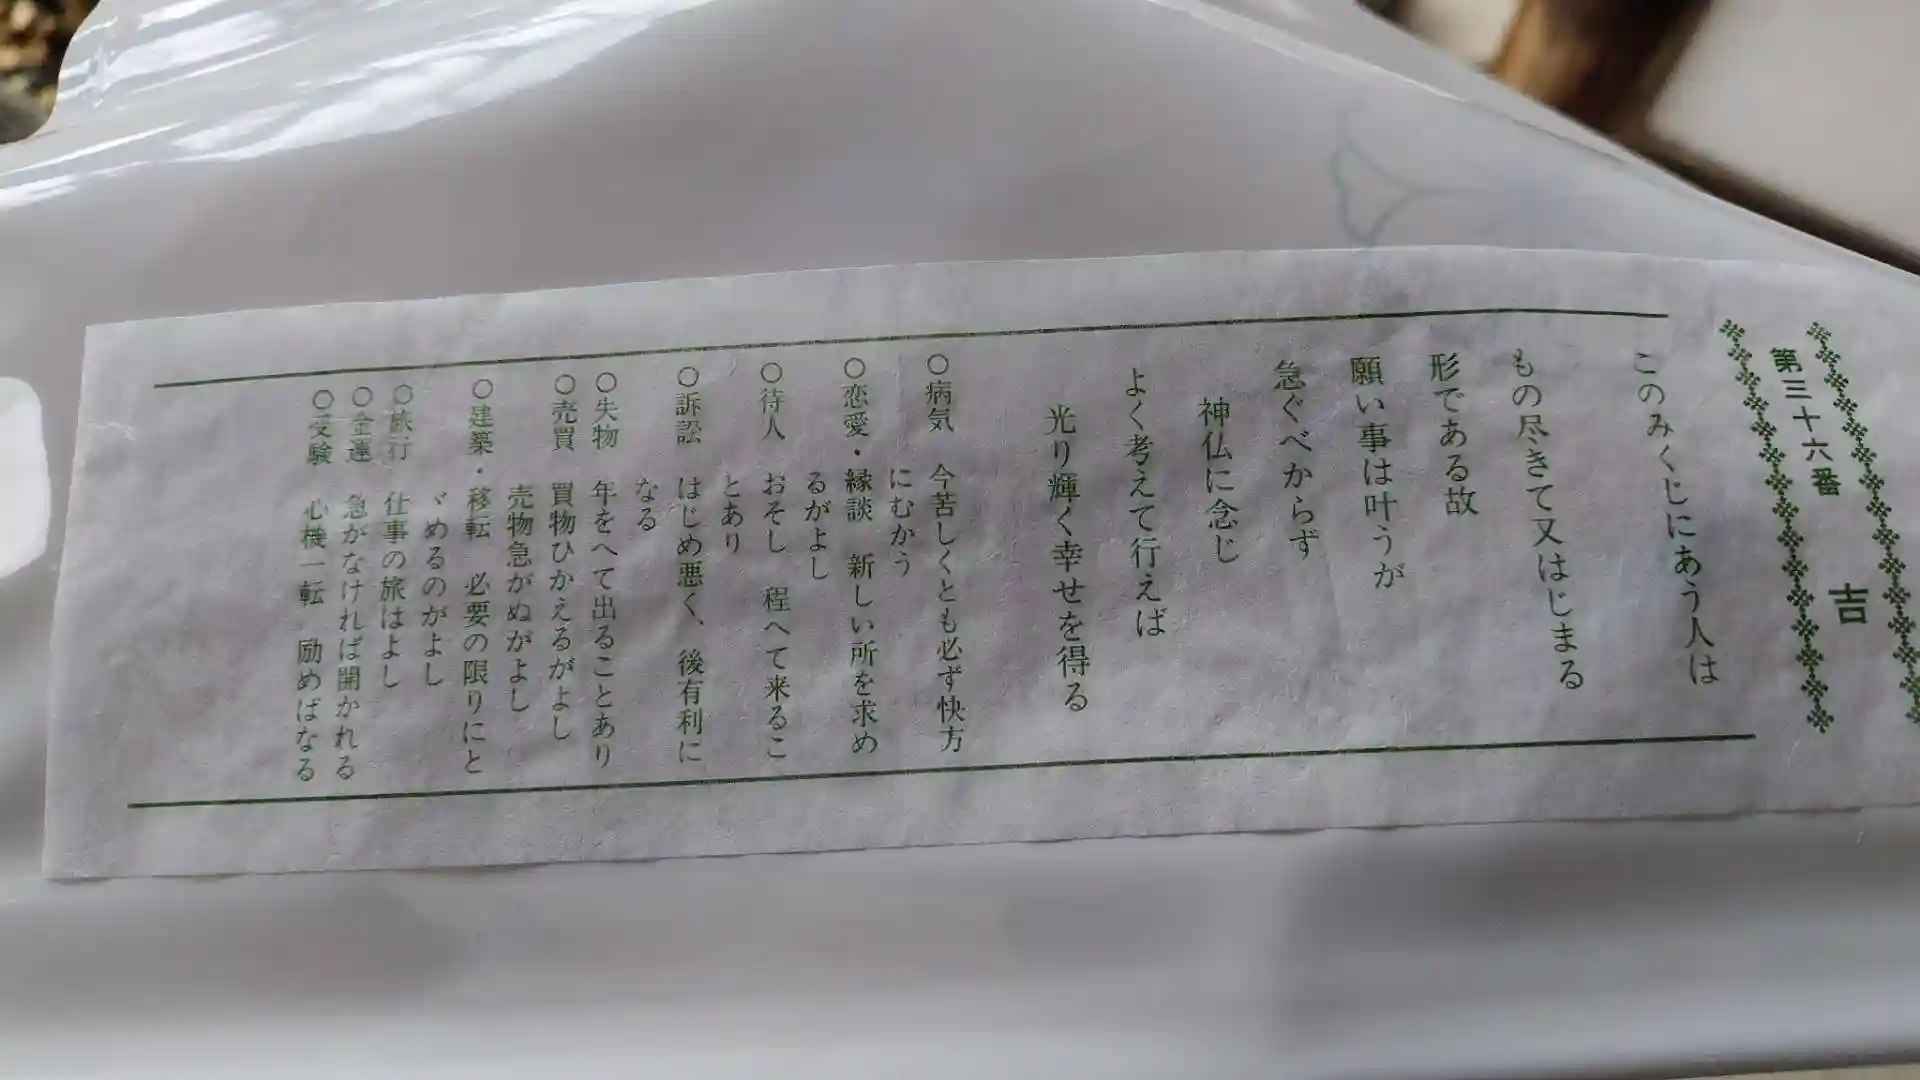 第三十六番 吉
このみくじにあう人は
もの尽きて又はじまる
形である故
願い事は叶うが
急ぐべからず
神仏に念じ
よく考えて行えば
光り輝く幸せを得る
○病気 今苦しくとも必ず快方
にむかう
○恋愛・縁談 新しい所を求め
るがよし
○待人 おそし 程へて来るこ
とあり
○訴訟 はじめ悪く、後有利に
なる
○失物 年をへて出ることあり
○売買 買物ひかえるがよし
売物急がぬがよし
○建築・移転 必要の限りにと
ゞめるのがよし
○旅行 仕事の旅はよし
○金運 急がなければ開かれる
○受験 心機一転 励めばなる